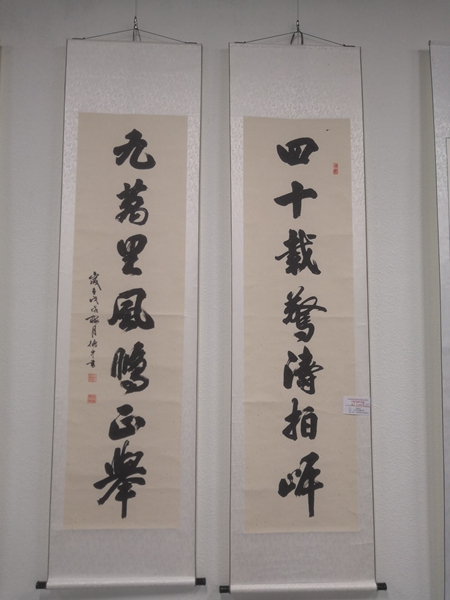 四十載驚濤拍岸
九萬里風鵬正舉
歲在戊戌 月 書